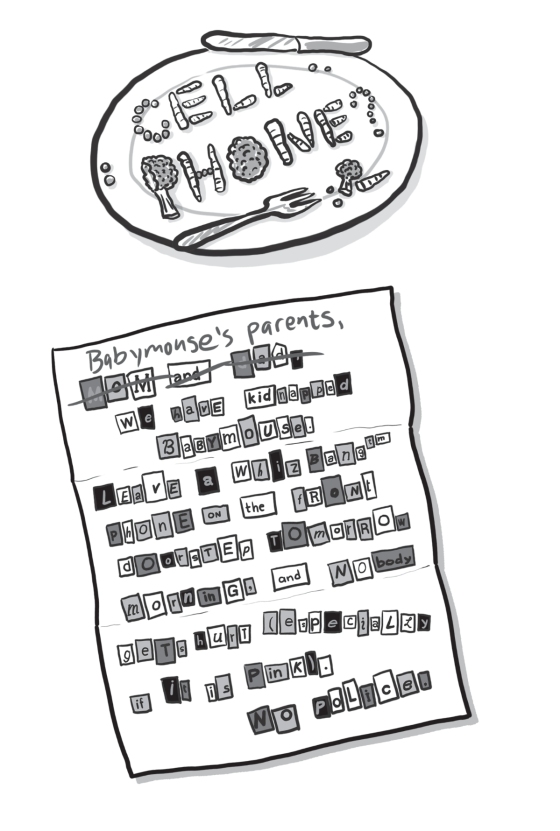 CELL
PHONE
Babymouse's parents,
MoM and Dad,
We have kidnapped
BaBYMOUSe.
LEaVE a WhizBang™
PhonE ON the fRONt
dOorsTEp TOmorROw
mornInG. and NObody
geTs hurT (especiaLLy
if it is PinK).
No PoLice.